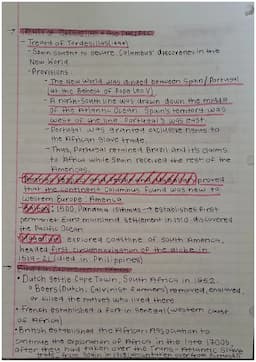 - Treaty of Tordesillas (1494)
- Spain sought to secure Columbus' discoveries in the
New World
- Provisions:
- The New World was divided between Spain/Portugal
at the Behest of Pope Leo V
- A north-south line was drawn down the middle
of the Atlantic Ocean. Spain's territory was
west of the line, Portugal's was east.
- Portugal was granted exclusive rights to
the African slave trade.
- Thus, Portugal retained Brazil and its claims
to Africa while Spain received the rest of the
Americas.
proved
that the continent Columbus found was new to
Western Europe: America
1500, Panama Isthmus → establishes first
permanent Euro mainland settlement in 1510, discovered
the Pacific Ocean
explored coastline of South America,
headed first circumnavigation of the globe in
1519-21 (died in Philippines)
• Dutch settle Cape Town, South Africa in 1652.
Boers (Dutch, Calvinist farmers) removed, enslaved,
or killed the natives who lived there
• French established a fort in Senegal (western coast
of Africa)
• British established the African Association to
continue the exploration of Africa in the late 1700s,
after they had taken over the Trans-Atlantic Slave